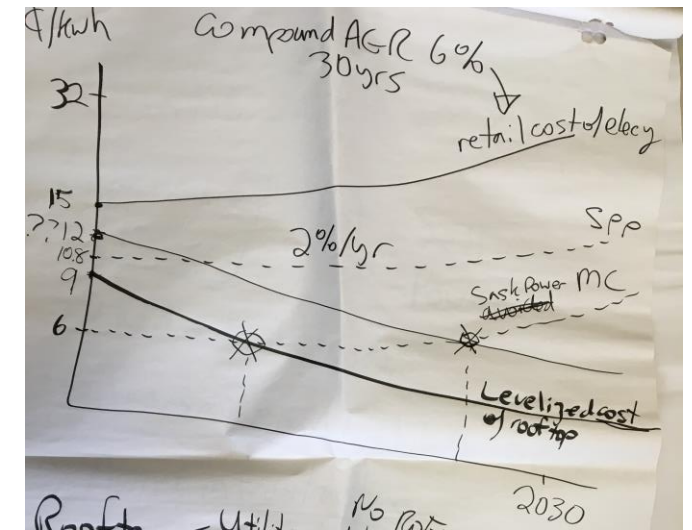 ¢/kwh
Compound AGR 6%
30yrs
32
retail cost of elecy
15
??12
10.8
9
2%/yr
SPP
SaskPower MC
avoided
6
Levelized cost
of rooftop
2030
Roofto
- Utilit
No Rot